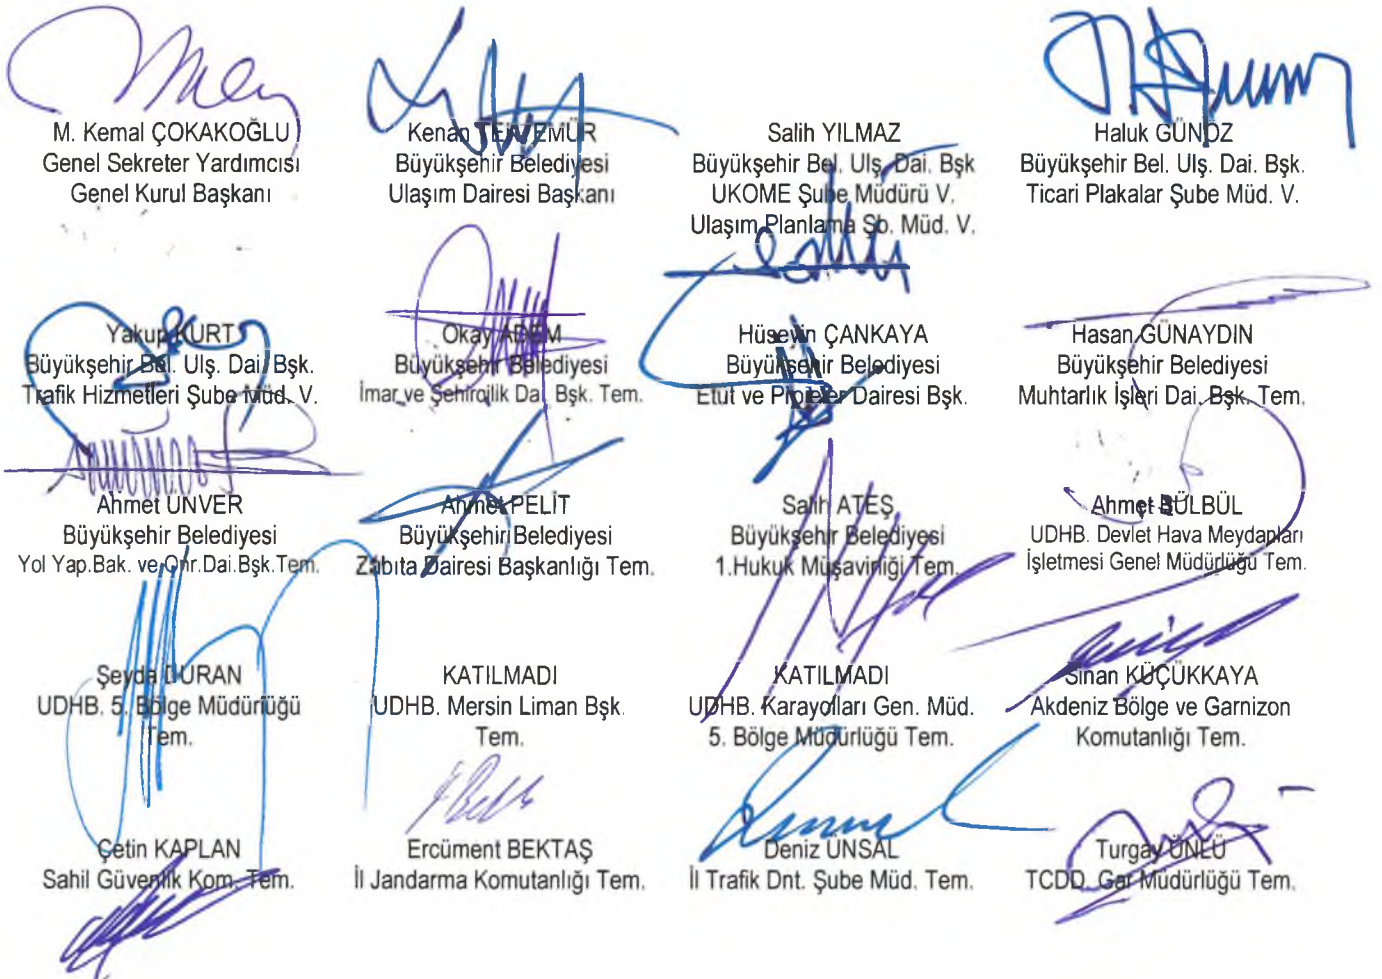 M. Kemal ÇOKAKOĞLU
Genel Sekreter Yardımcısı
Genel Kurul Başkanı
Kenan
Büyükşehir Belediyesi
Ulaşım Dairesi Başkanı
Salih YILMAZ
Büyükşehir Bel. Ulş. Dai. Bşk
UKOME Şube Müdürü V.
Ulaşım Planlama Şb. Müd. V.
Haluk GÜNÖZ
Büyükşehir Bel. Ulş. Dai. Bşk.
Ticari Plakalar Şube Müd. V.
Yakup KURT
Büyükşehir Bel. Ulş. Dai. Bşk.
Trafik Hizmetleri Şube Müd. V.
Okay ADEM
Büyükşehir Belediyesi
İmar ve Şehircilik Dai. Bşk. Tem.
Hüseyin ÇANKAYA
Büyükşehir Belediyesi
Etüt ve Projeler Dairesi Bşk.
Hasan GÜNAYDIN
Büyükşehir Belediyesi
Muhtarlık İşleri Dai. Bşk. Tem.
Ahmet ÜNVER
Büyükşehir Belediyesi
Yol Yap.Bak. ve Onr.Dai.Bşk.Tem.
Ahmet PELİT
Büyükşehir Belediyesi
Zabıta Dairesi Başkanlığı Tem.
Salih ATEŞ
Büyükşehir Belediyesi
1.Hukuk Müşavirliği Tem.
Ahmet BÜLBÜL
UDHB. Devlet Hava Meydanları
İşletmesi Genel Müdürlüğü Tem.
Şeyda DURAN
UDHB. 5. Bölge Müdürlüğü
Tem.
KATILMADI
UDHB. Mersin Liman Bşk.
Tem.
KATILMADI
UDHB. Karayolları Gen. Müd.
5. Bölge Müdürlüğü Tem.
Sinan KÜÇÜKKAYA
Akdeniz Bölge ve Garnizon
Komutanlığı Tem.
Çetin KAPLAN
Sahil Güvenlik Kom. Tem.
Ercüment BEKTAŞ
İl Jandarma Komutanlığı Tem.
Deniz ÜNSAL
İl Trafik Dnt. Şube Müd. Tem.
Turgay ÜNLÜ
TCDD. Gar Müdürlüğü Tem.